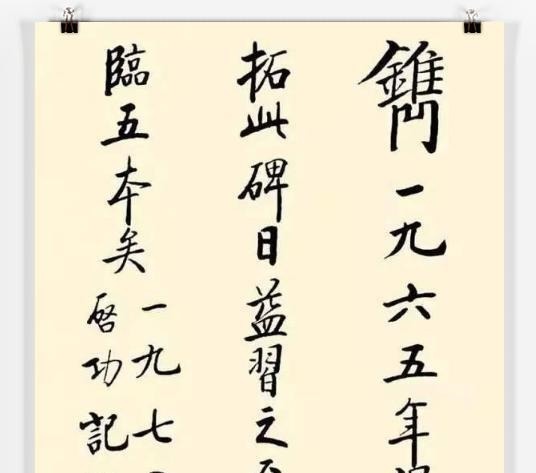 一九六五年
拓此碑日益習之
臨五本矣
一九七
啓功記